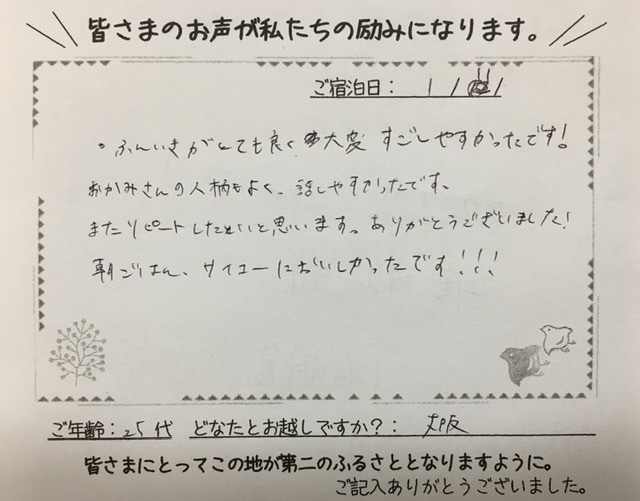 皆さまのお声が私たちの励みになります。
ご宿泊日： 1 / 1
・ふんいきがとても良く大変すごしやすかったです！
おかみさんの人柄もよく、話しやすかったです。
またリピートしたいと思います。ありがとうございました！
朝ごはん、サイコーにおいしかったです！！！
ご年齢：25代 どなたとお越しですか？： 大阪
皆さまにとってこの地が第二のふるさととなりますように。
ご記入ありがとうございました。